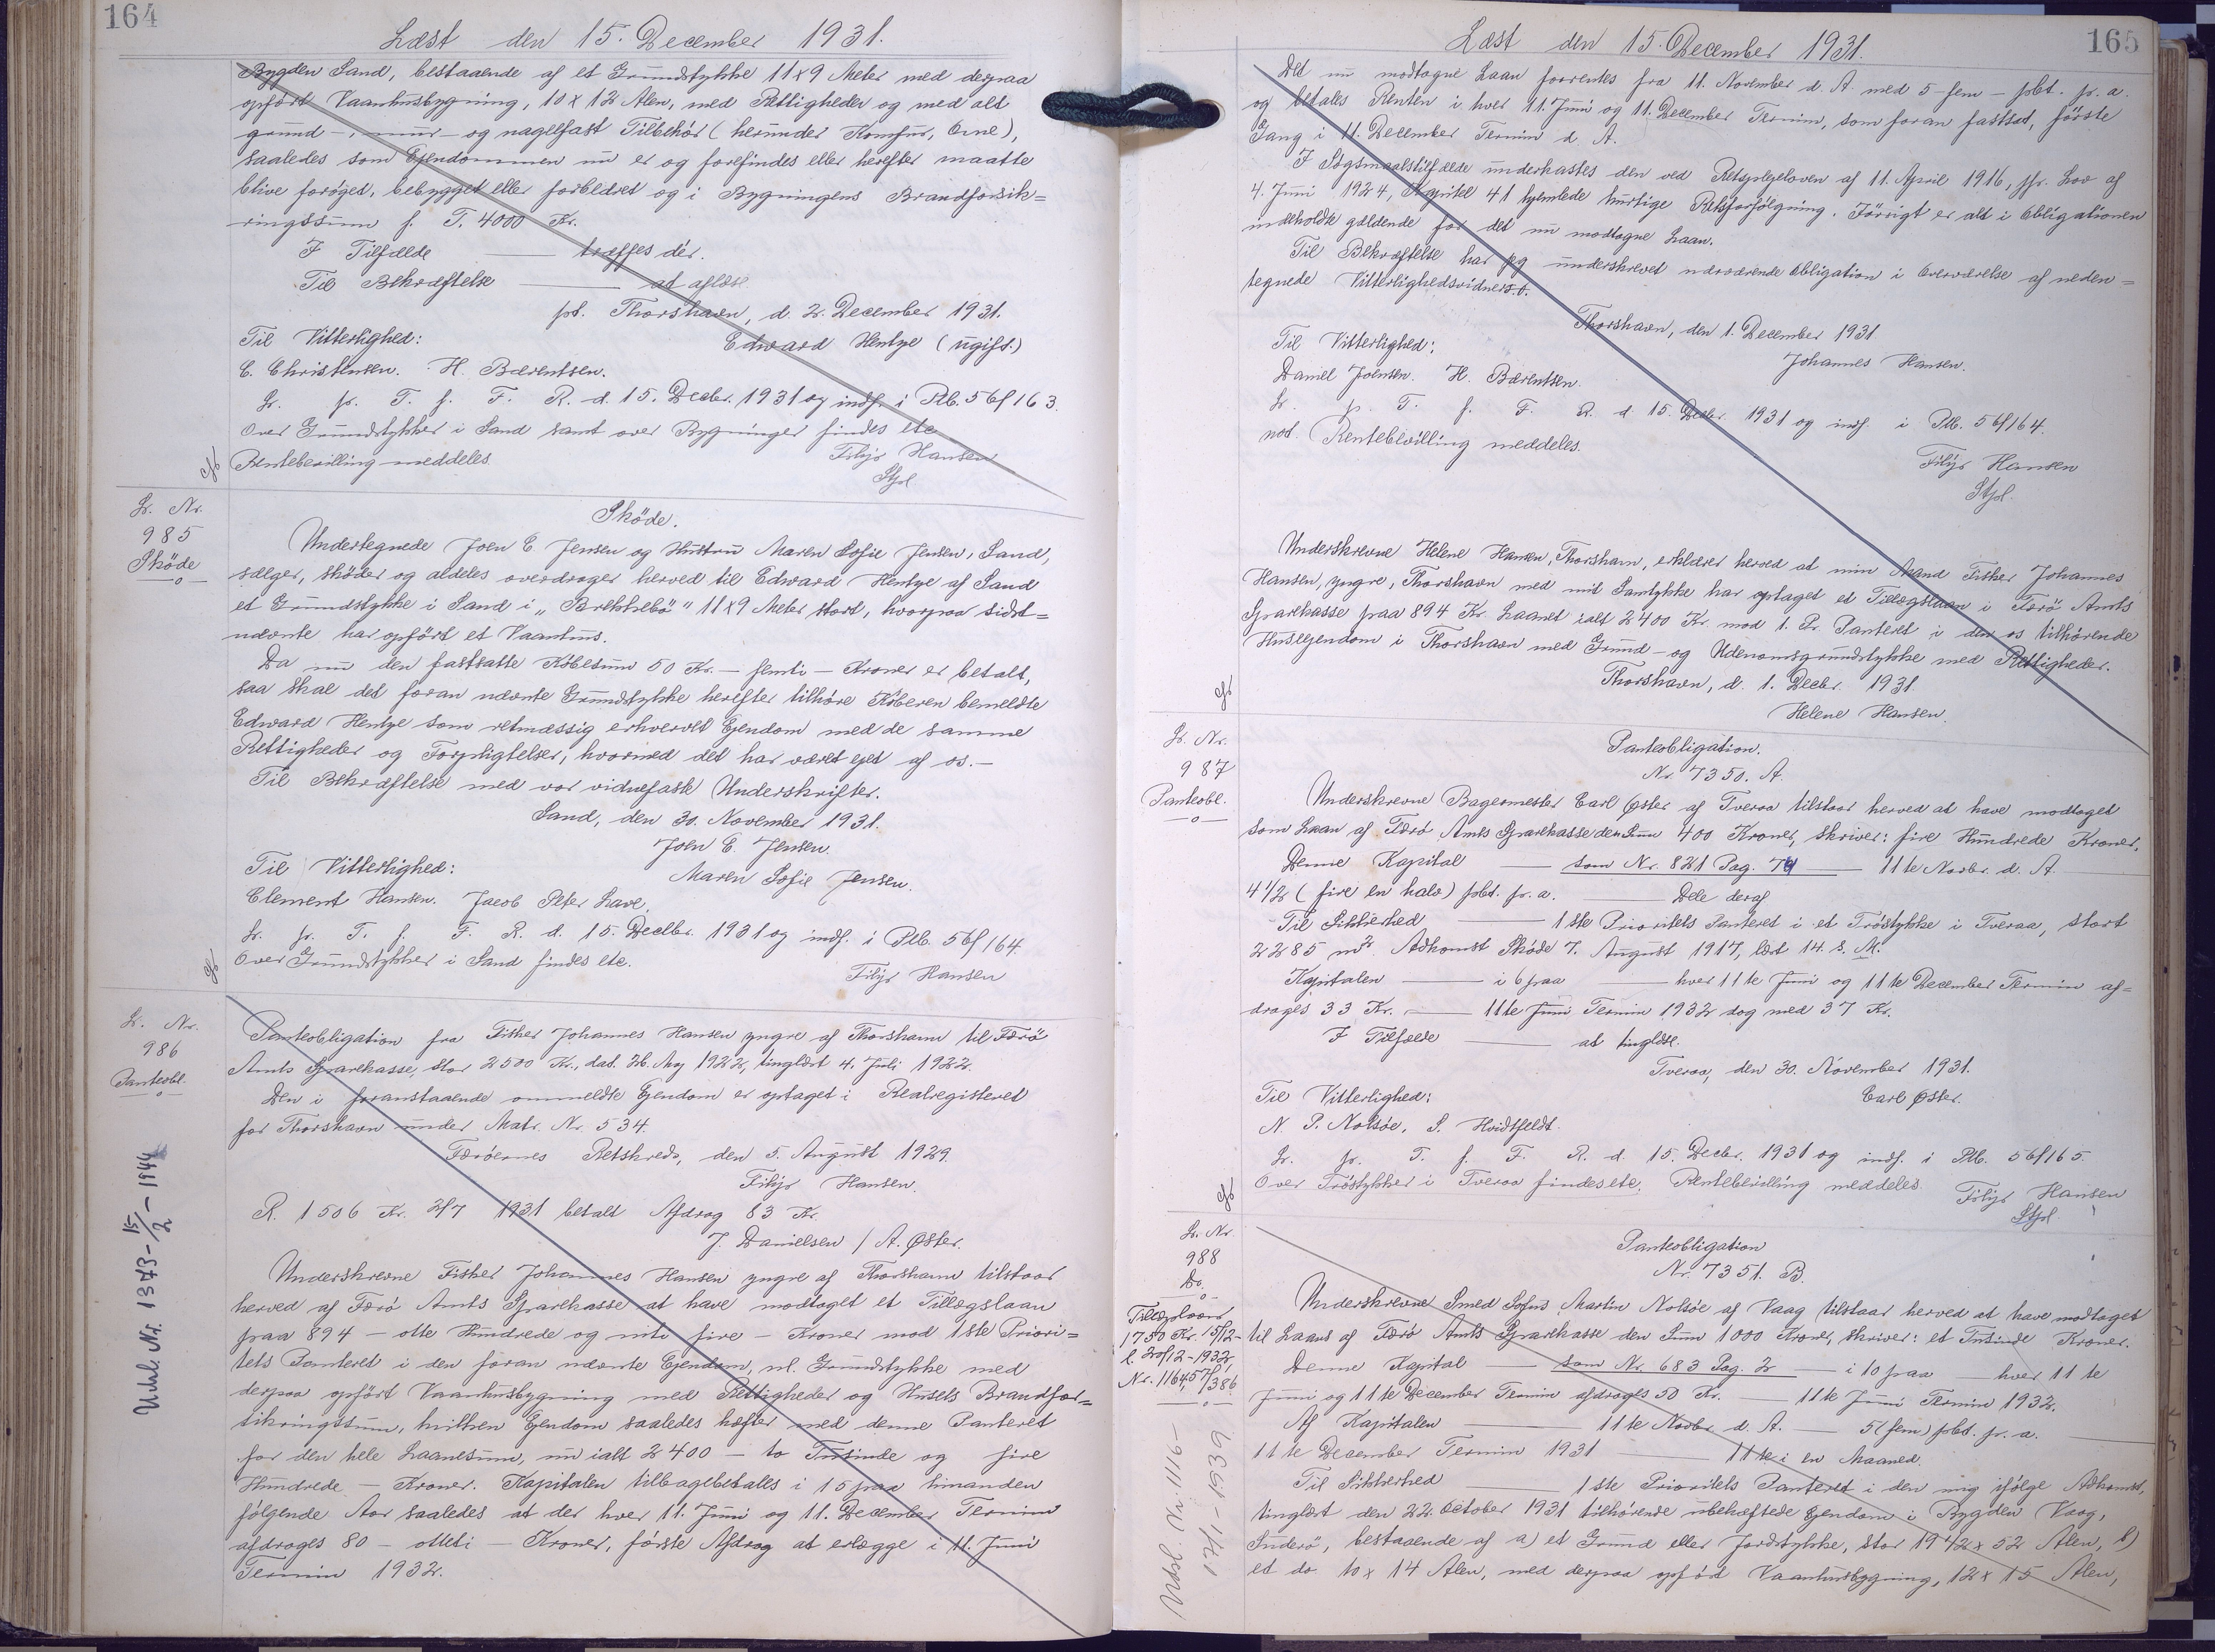 164
Læst den 15. December 1931.
Bygden Sand, bestaaende af et Grundstykke 11x9 Meter med derpaa
opført Vaanhusbygning, 10 x 12 Alen, med Rettigheder og med alt
grund-, mur- og nagelfast Tilbehör (herunder Komfur, Ovne),
saaledes som Ejendommen nu er og forefindes eller herefter maatte
blive forøget, bebygget eller forbedret og i Bygningens Brandforsik=
ringssum p. T. 4000 Kr.
I Tilfælde —— træffes dér.
Til Bekræftelse —— at aflæse.
pt. Thorshavn, d. 2. December 1931.
Til Vitterlighed: Edward Hentze (ugift.)
C. Christensen. H. Bærentsen.
Lr. pr. T. f. F. R. d. 15. Decbr. 1931 og indf. i Ptb. 56/163.
Over Grundstykker i Sand samt over Bygninger findes etc
Rentebevilling meddeles. Filijs Hansen
Stfol
Lr. Nr.
985
Sköde
Sköde.
Undertegnede Joen C. Jensen og Hustru Maren Sofie Jensen, Sand,
sælger, sköder og aldeles overdrager herved til Edward Hentze af Sand
et Grundstykke i Sand i „Brekkebö" 11x9 Meter stort, hvorpaa sidst=
nævnte har opført et Vaanhus.
Da nu den fastsatte Köbesum 50 Kr. - femti - Kroner er betalt,
saa skal det foran nævnte Grundstykke herefter tilhöre Köberen bemeldte
Edward Hentze som retmæssig erhvervet Ejendom med de samme
Rettigheder og Forpligtelser, hvormed det har været ejet af os.-
Til Bekræftelse med vor vidnefaste Underskrifter.
Sand, den 30. November 1931.
Joen C. Jensen.
Til Vitterlighed: Maren Sofie Jensen.
Clement Hansen. Jacob Peter Lave.
Lr. pr. T. f. F. R. d. 15. Decbr. 1931 og indf. i Ptb. 56/164.
Over Grundstykker i Sand findes etc.
Filijs Hansen
Lr. Nr.
986
Panteobl.
Panteobligation fra Fisker Johannes Hansen yngre af Thorshavn til Færö
Amts Sparekasse, stor 2500 Kr., dat. 26. Maj 1922, tinglæst 4. Juli 1922.
Den i foranstaaende ommeldte Ejendom er optaget i Realregisteret
for Thorshavn under Matr. Nr. 534.
Færöernes Retskreds, den 5. August 1929.
Filijs Hansen.
R. 1506 Kr. 2/7 1931 betalt Afdrag 83 Kr.
J. Danielsen / A. Øster.
Underskrevne Fisker Johannes Hansen yngre af Thorshavn tilstaar
herved af Færö Amts Sparekasse at have modtaget et Tillægslaan
paa 894 - otte Hundrede og niti fire - Kroner mod 1ste Priori=
tets Panteret i den foran nævnte Ejendom, nl. Grundstykke med
derpaa opført Vaanhusbygning med Rettigheder og Husets Brandfor=
sikringssum, hvilken Ejendom saaledes hæfter med denne Panteret
for den hele Laanesum, nu ialt 2400 - to Tusinde og fire
Hundrede - Kroner. Kapitalen tilbagebetales i 15 paa hinanden
følgende Aar saaledes at der hver 11. Juni og 11. December Termin
afdrages 80 - otteti - Kroner, første Afdrag at erlægge i 11. Juni
Termin 1932.
Udsl. Nr. 1373 - 15/2 - 1944
165
Læst den 15. December 1931.
Det nu modtagne Laan forrentes fra 11. November d. A. med 5 - fem - pbt. pr. a.
og betales Renten i hver 11. Juni og 11. December Termin, som foran fastsat, første
Gang i 11. December Termin d. A.
I Søgsmaalstilfælde underkastes den ved Retsplejeloven af 11. April 1916, jfr. Lov af
4. Juni 1924, Kapitel 41 hjemlede hurtige Retsforfølgning. Førrigt er alt i Obligationen
indeholdte gældende for det nu modtagne Laan.
Til Bekræftelse har jeg underskrevet nærværende Obligation i Overværelse af neden=
tegnede Vitterlighedsvidner.
Thorshavn, den 1. December 1931
Til Vitterlighed: Johannes Hansen.
Daniel Joensen. H. Bærentsen.
Lr. p. T. f. F. R. d. 15. Decbr. 1931 og indf. i Ptb. 56/164.
not. Rentebevilling meddeles.
Filijs Hansen
Stfol.
Underskrevne Helene Hansen, Thorshavn, erklærer herved at min Mand Fisker Johannes
Hansen, yngre, Thorshavn med mit Samtykke har optaget et Tillægslaan i Færö Amts
Sparekasse paa 894 Kr. Laanet ialt 2400 Kr. mod 1. Pr. Panteret i den os tilhørende
Husejendom i Thorshavn med Grund- og Udenomsgrundstykke med Rettigheder.
Thorshavn, d. 1. Decbr. 1931.
Helene Hansen.
Lr. Nr.
987
Panteobl.
Panteobligation.
Nr. 7350. A.
Underskrevne Bagermester Carl Øster af Tveraa tilstaar herved at have modtaget
som Laan af Færö Amts Sparekasse den Sum 400 Kroner, skriver: fire Hundrede Kroner.
Denne Kapital —— som Nr. 821 Pag. 74 —— 11te Novbr. d. A.
4 1/2 (fire en halv) pbt. pr. a. —— Dele deraf
Til Sikkerhed —— 1ste Prioritets Panteret i et Tröstykke i Tveraa, stort
2285 m². Adkomst Sköde 7. August 1917, læst 14. s. M.
Kapitalen —— i 6 paa —— hver 11te Juni og 11te December Termin af=
drages 33 Kr. —— 11te Juni Termin 1932 dog med 37 Kr.
I Tilfælde —— at tinglæse.
Tveraa, den 30. November 1931.
Til Vitterlighed: Carl Øster.
N. P. Nolsøe. S. Hvidtfeldt.
Lr. pr. T. f. F. R. d. 15. Decbr. 1931 og indf. i Ptb. 56/165.
Over Tröstykker i Tveraa findes etc. Rentebevilling meddeles. Filijs Hansen
Stfol
Lr. Nr.
988
Do.
Panteobligation
Nr. 7351. B.
Tillægslaan
1750 Kr. 15/12-
l. 20/12-1932,
Nr. 1164, 57/386
Underskrevne Smed Sofus Martin Nolsøe af Vaag tilstaar herved at have modtaget
til Laans af Færö Amts Sparekasse den Sum 1000 Kroner, skriver: et Tusinde Kroner.
Denne Kapital —— som Nr. 683 Pag. 2 —— i 10 paa —— hver 11te
Juni og 11te December Termin afdrages 50 Kr. —— 11te Juni Termin 1932.
Af Kapitalen —— 11te Novbr. d. A. —— 5 (fem) pbt. pr. a.
11te December Termin 1931 —— 11te i en Maaned.
Til Sikkerhed —— 1ste Prioritets Panteret i den mig ifølge Adkomst,
tinglæst den 22. October 1931 tilhørende ubehæftede Ejendom i Bygden Vaag,
Suderö, bestaaende af a) et Grund eller Jordstykke, stor 19 1/2 x 52 Alen, b)
et do. 10 x 14 Alen, med derpaa opført Vaanhusbygning, 12 x 15 Alen,
Udsl. Nr. 1116 -
17/1-1939